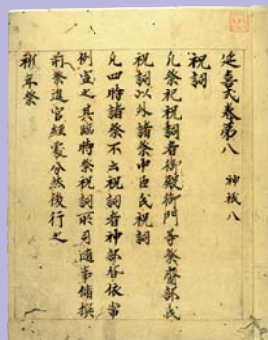 延喜式卷第八 神祇八
祝詞
凡祭祀祝詞者御殿御門等祭齋部氏
祝詞以外諸祭中臣氏祝詞
凡四時諸祭不云祝詞者神部皆依常
例宣之其臨時祭祝詞所司隨事脩撰
前祭進官經處分然後行之
祈年祭